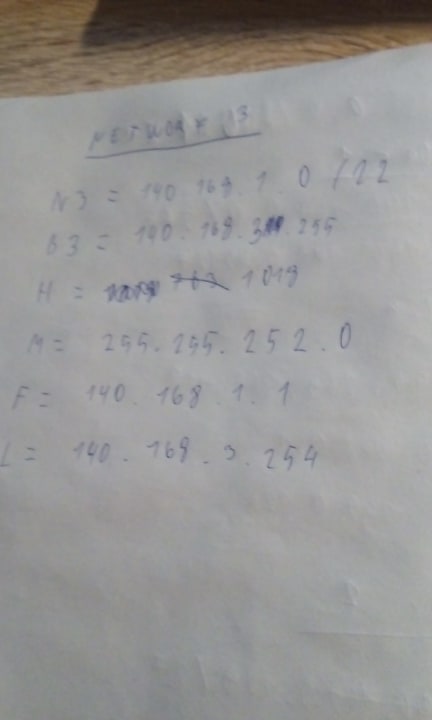 NETWORK 3
N3 = 140.168.1.0 /22
B3 = 140.168.3.255
H = 1019
M = 255.255.252.0
F = 140.168.1.1
L = 140.168.3.254